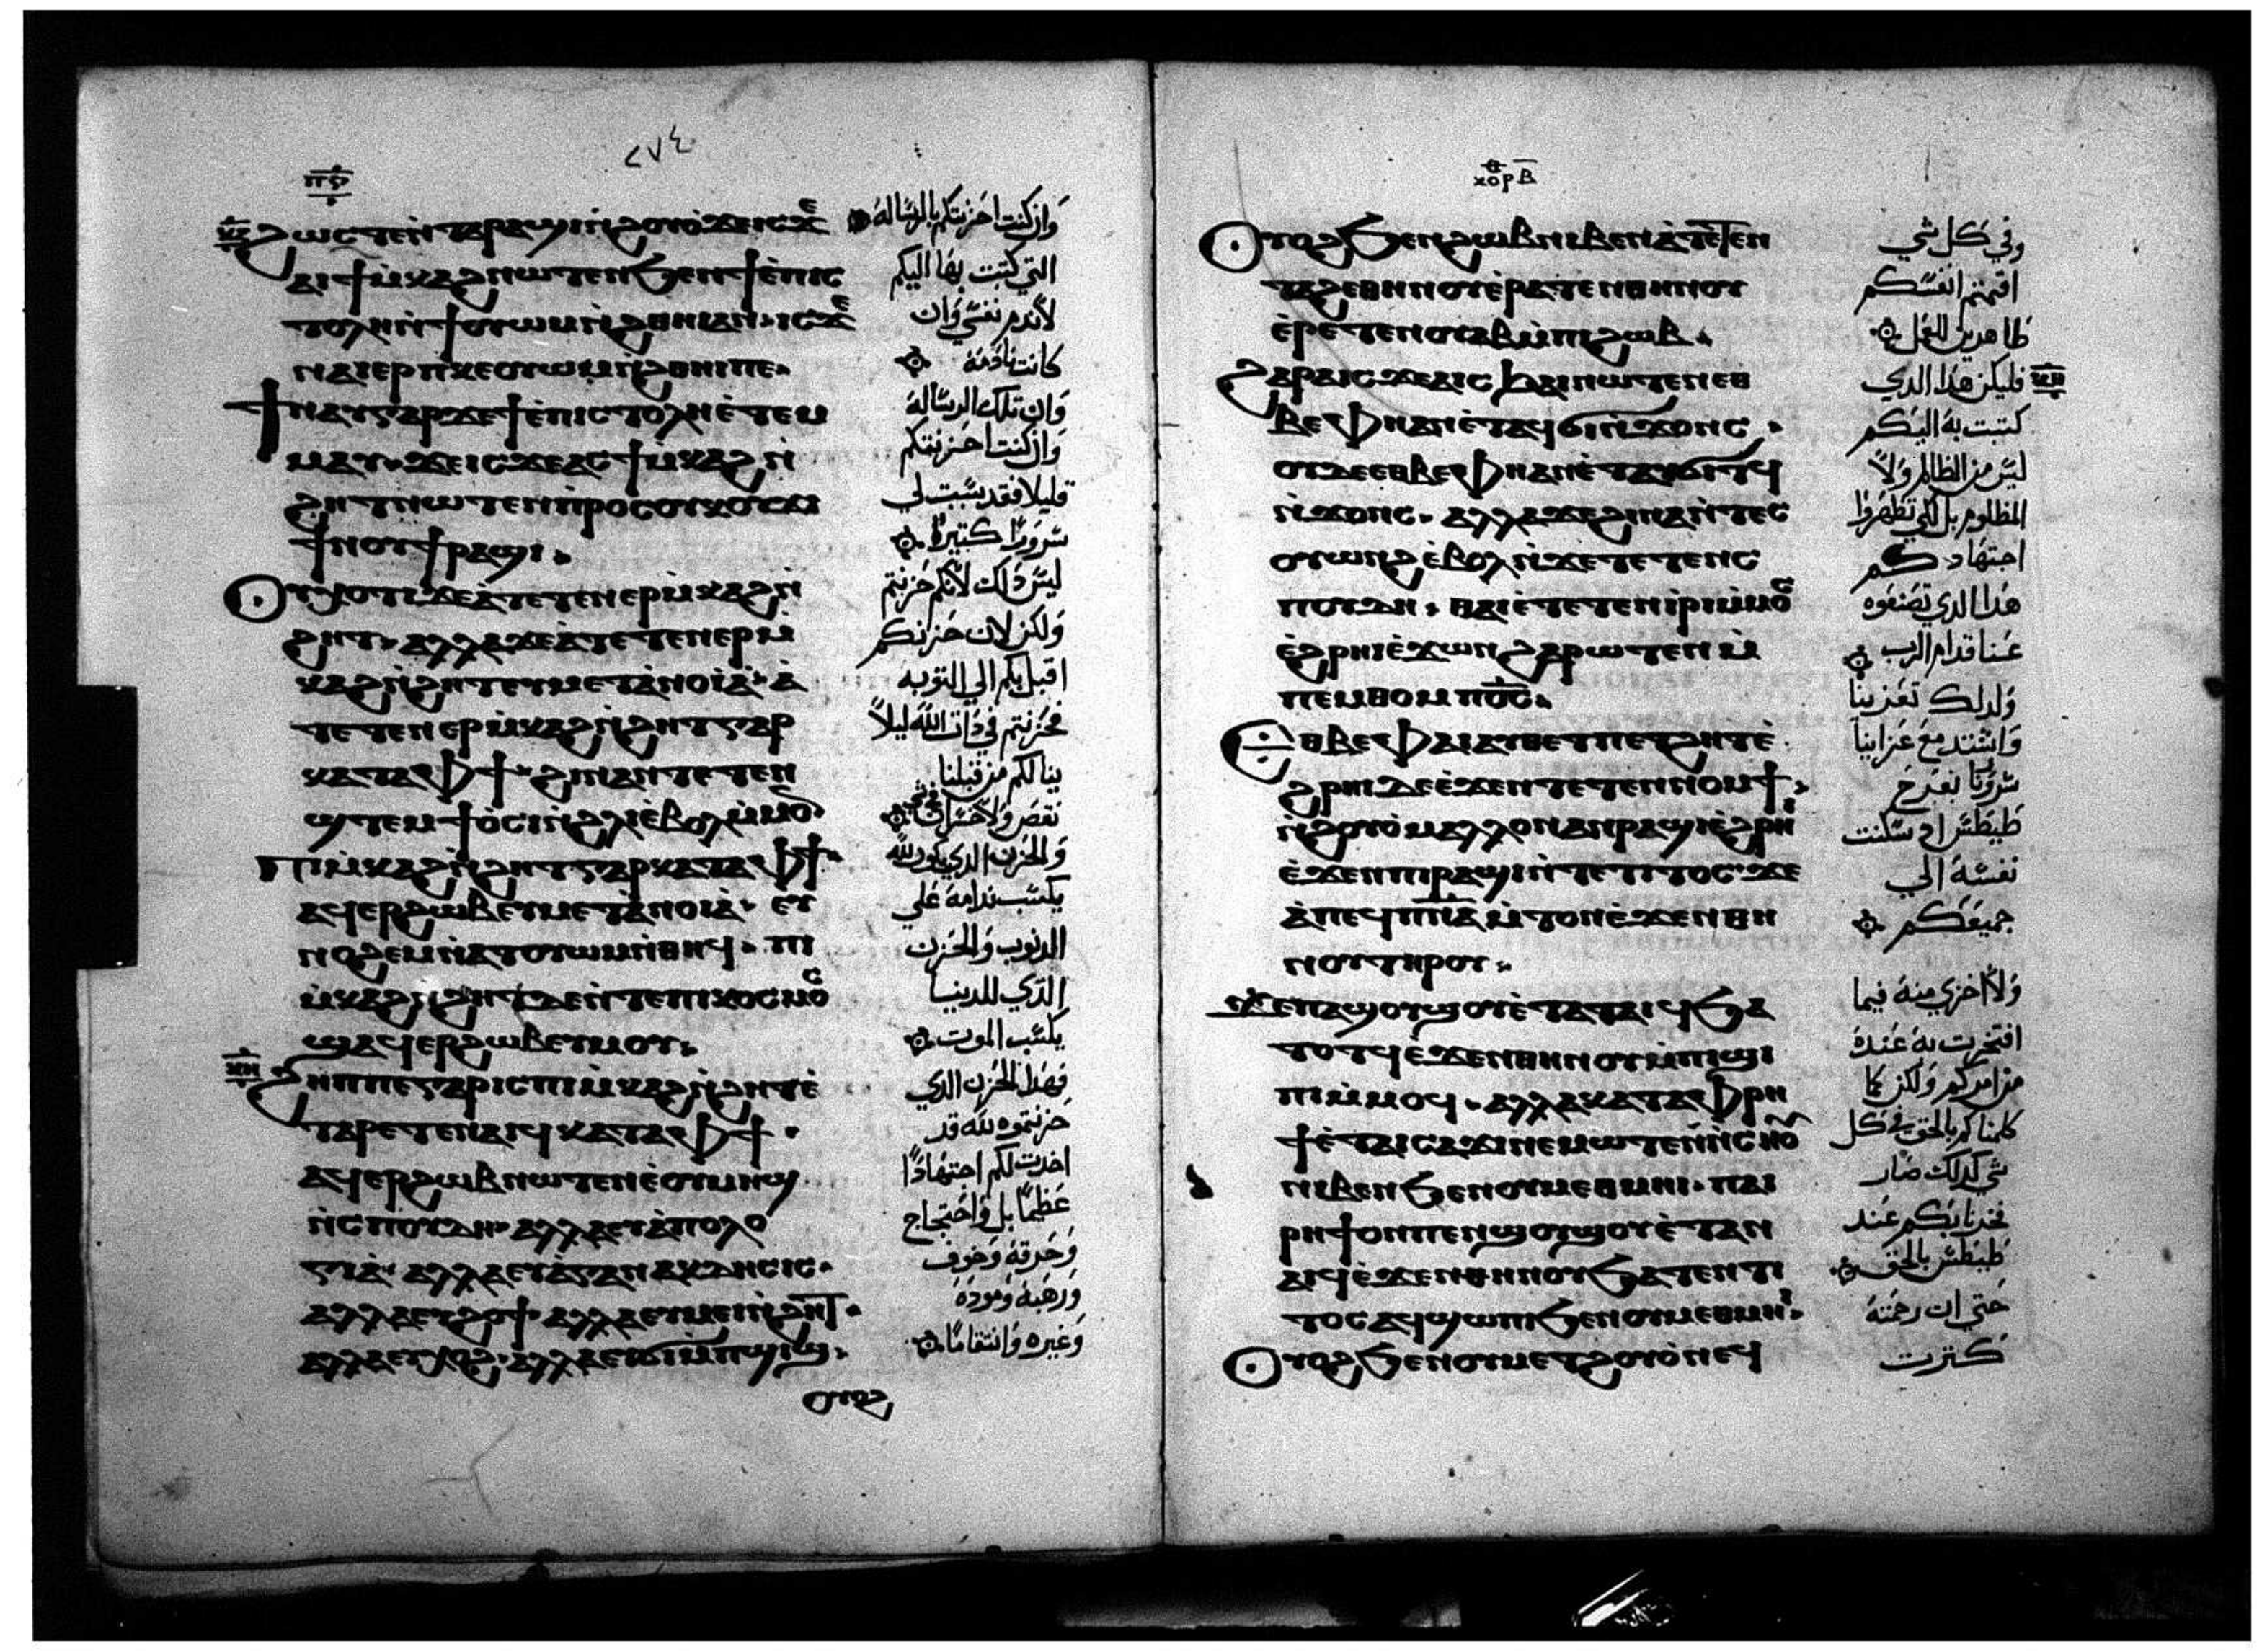 ٢٧٤
ⲡ̅ⲣ̅
ϩⲱⲥⲧⲉⲛ̀ⲧⲁⲣⲁϣⲓⲛ̀ϩⲟⲩⲟ̀ϫⲉⲓⲥϫⲉ
ⲁⲓϯⲙ̀ⲕⲁϩⲛⲱⲧⲉⲛϧⲉⲛϯⲉ̀ⲡⲓⲥ
ⲧⲟⲗⲏⲛ̀ϯⲟⲩⲱⲙⲛ̀ϩⲑⲏⲓⲁⲛ· ⲓⲥϫⲉ
ⲛⲁⲓⲉⲣⲡⲕⲉⲟⲩⲱⲙⲛ̀ϩⲑⲏⲓⲡⲉ·
ϯⲛⲁⲩⲅⲁⲣϫⲉϯⲉ̀ⲡⲓⲥⲧⲟⲗⲏⲉ̀ⲧⲉⲙ
ⲙⲁⲩ· ϫⲉⲓⲥϫⲉⲁⲥϯⲙ̀ⲕⲁϩⲛ̀
ϩⲏⲧⲛⲱⲧⲉⲛⲡ̀ⲣⲟⲥⲟⲩⲕⲟⲩϫⲓ
ϯⲛⲟⲩϯⲣⲁϣⲓ·
ⲟⲩⲭⲟⲧⲓϫⲉⲁ̀ⲧⲉⲧⲉⲛⲉⲣⲙ̀ⲕⲁϩⲛ̀
ϩⲏⲧ· ⲁⲗⲗⲁϫⲉⲁ̀ⲧⲉⲧⲉⲛⲉⲣⲙ̀
ⲕⲁϩⲛ̀ϩⲏⲧⲉⲩⲙⲉⲧⲁ̀ⲛⲟⲓⲁ̀· ⲁ̀
ⲧⲉⲧⲉⲛⲉⲣⲙ̀ⲕⲁϩⲛ̀ϩⲏⲧⲅⲁⲣ
ⲕⲁⲧⲁⲫϯ· ϩⲓⲛⲁⲛⲧⲉⲧⲉⲛ
ϣⲧⲉⲙϯⲟ̀ⲥⲓⲛ̀ϩⲗⲓⲉ̀ⲃⲟⲗⲙ̀ⲙⲟⲛ
ⲡⲓⲙ̀ⲕⲁϩⲛ̀ϩⲏⲧⲅⲁⲣⲕⲁⲧⲁⲫϯ·
ⲁϥⲉⲣϩⲱⲃⲉⲩⲙⲉⲧⲁ̀ⲛⲟⲓⲁ̀· ⲉⲩ
ⲛⲟϩⲉⲙⲛ̀ⲁⲧⲟⲩⲱⲙⲛ̀ⲑⲏϥ· ⲡⲓ
ⲙ̀ⲕⲁϩⲛ̀ϩⲏⲧⲇⲉⲛ̀ⲧⲉⲡⲓⲕⲟⲥⲙⲟⲥ
ϣⲁϥⲉⲣϩⲱⲃⲉⲩⲙⲟⲩ·
ϩⲏⲡⲡⲉⲅⲁⲣⲓⲥⲡⲓⲙ̀ⲕⲁϩⲛ̀ϩⲏⲧⲉ̀
ⲧⲁⲣⲉⲧⲉⲛⲁⲓϥⲕⲁⲧⲁⲫϯ·
ⲁϥⲉⲣϩⲱⲃⲛⲱⲧⲉⲛⲉ̀ⲟⲩⲙⲏϣ
ⲛ̀ⲥⲡⲟⲩⲇⲏ· ⲁⲗⲗⲁⲉⲩⲁ̀ⲡⲟⲗⲟ
ⲅⲓⲁ̀· ⲁⲗⲗⲁⲉⲩⲁ̀ⲅⲁⲛⲁⲕⲇⲏⲥⲓⲥ·
ⲁⲗⲗⲁⲉⲩϩⲟϯ· ⲁⲗⲗⲁⲉⲩⲙⲉⲓⲛ̀ϩⲏⲧ·
ⲁⲗⲗⲁⲉⲩⲭⲟϩ· ⲁⲗⲗⲁⲉⲩϭⲓⲙ̀ⲡϣⲓϣ·
ⲟⲩⲟϩ
وان كنت احزنتكم بالرساله
التي كتبت بها اليكم
لا اندم نفسي وان
كانت نادمة
وان تلك الرسالة
وان كنت احزنتكم
قليلا فقد سببت لي
سرورًا كتيرًا
ليس ذلك لانكم حزنتم
ولكن لان حزنكم
اقبل بكم الي التوبه
فحزنتم في ذات الله ليلاً
ينالكم من قبلنا
نقص ولا خسران
والحزن الذي يكون لله
يكسب ندامة علي
الدنوب والحزن
الذي للدنيا
يكسب الموت
فهدا الحزن الدي
حزنتموه لله قد
اخدت لكم اجتهادًا
عظيمًا بل واحتجاج
وحرقة وخوف
ورهبة ومودة
وغيره وانتقامًا
ⲕⲟⲣ ⲃ̅
ⲟⲩⲟϩϧⲉⲛϩⲱⲃⲛⲓⲃⲉⲛⲁ̀ⲧⲉⲧⲉⲛ
ⲧⲁϩⲉⲑⲏⲛⲟⲩⲉ̀ⲣⲁⲧⲉⲛⲑⲏⲛⲟⲩ
ⲉ̀ⲣⲉⲧⲉⲛⲟⲩⲁⲃⲙ̀ⲡⲓϩⲱⲃ·
ϩⲁⲣⲁⲓⲥϫⲉⲁⲓⲥϧⲁⲓⲛⲱⲧⲉⲛⲉⲑ
ⲃⲉⲫⲏⲁⲛⲉ̀ⲧⲁϥϭⲓⲛ̀ϫⲟⲛⲥ·
ⲟⲩⲇⲉⲉⲑⲃⲉⲫⲏⲁⲛⲉ̀ⲧⲁⲩϭⲓⲧϥ
ⲛ̀ϫⲟⲛⲥ· ⲁⲗⲗⲁϫⲉϩⲓⲛⲁⲛ̀ⲧⲉⲥ
ⲟⲩⲱⲛϩⲉ̀ⲃⲟⲗⲛ̀ϫⲉⲧⲉⲧⲉⲛⲥ
ⲡⲟⲩⲇⲏ· ⲑⲁⲓⲉ̀ⲧⲉⲧⲉⲛⲓ̀ⲣⲓⲙ̀ⲙⲟⲥ
ⲉ̀ϩⲣⲏⲓⲉ̀ϫⲱⲛϩⲁⲣⲱⲧⲉⲛⲙ̀
ⲡⲉⲙⲑⲟⲙⲡⲟ̅ⲥ̅·
ⲉⲑⲃⲉⲫⲁⲓⲁⲩⲑⲉⲧⲡⲉⲧϩⲏⲧⲉ̀
ϩⲣⲏⲓⲇⲉⲉ̀ϫⲉⲛⲧⲉⲧⲉⲛⲛⲟⲙϯ·
ⲛ̀ϩⲟⲩⲟ̀ⲙⲁⲗⲗⲟⲛⲁⲛⲣⲁϣⲓⲉ̀ϩⲣⲏⲓ
ⲉ̀ϫⲉⲛⲡⲓⲣⲁϣⲓⲛ̀ⲧⲉⲧⲓⲧⲟⲥ· ϫⲉ
ⲁ̀ⲡⲉϥⲡ̅ⲛ̅ⲁ̅ⲙ̀ⲧⲟⲛⲉ̀ϫⲉⲛⲑⲏ
ⲛⲟⲩⲧⲏⲣⲟⲩ·
ϫⲉⲡⲁϣⲟⲩϣⲟⲩⲉ̀ⲧⲁⲧⲁⲓϥϧⲁ
ⲧⲟⲧϥⲉ̀ϫⲉⲛⲑⲏⲛⲟⲩⲙ̀ⲡⲓϣⲓ
ⲡⲓⲙ̀ⲙⲟϥ· ⲁⲗⲗⲁⲕⲁⲧⲁⲫⲣⲏ
ϯⲉ̀ⲧⲁⲓⲥⲁϫⲓⲛⲉⲙⲱⲧⲉⲛⲛ̀ⲥⲙⲟⲧ
ⲛⲓⲃⲉⲛϧⲉⲛⲟⲩⲙⲉⲑⲙⲏⲓ· ⲡⲁⲓ
ⲣⲏϯⲟⲛⲡⲉⲛϣⲟⲩϣⲟⲩⲉ̀ⲧⲁⲛ
ⲁⲓϥⲉ̀ϫⲉⲛⲑⲏⲛⲟⲩϧⲁⲧⲉⲛⲧⲓ
ⲧⲟⲥⲁϥϣⲱⲡⲓϧⲉⲛⲟⲩⲙⲉⲑⲙⲏⲓ·
ⲟⲩⲟϩϧⲉⲛⲟⲩⲙⲉⲧϩⲟⲩⲟ̀ⲛⲉϥ
وفي كل شي
اقمتم انفسكم
طاهرين العمل
فليكن هدا الدي
كتبت به اليكم
ليس من الظالم ولا
المظلوم بل لكي تظهروا
اجتهادكم
هدا الدي تصنعوه
عنا قدام الرب
ولدلك تعزينا
واشتد مع عزاينا
سرورنا بفرح
طيطس اد سكنت
نفسة الي
جميعكم
ولا اخزي منه فيما
افتخرت به عنده
من امركم ولكن كما
كلمناكم بالحق في كل
شي كدلك صار
فخرنا بكم عند
طيطس بالحق
حتي ان رحمته
كترت